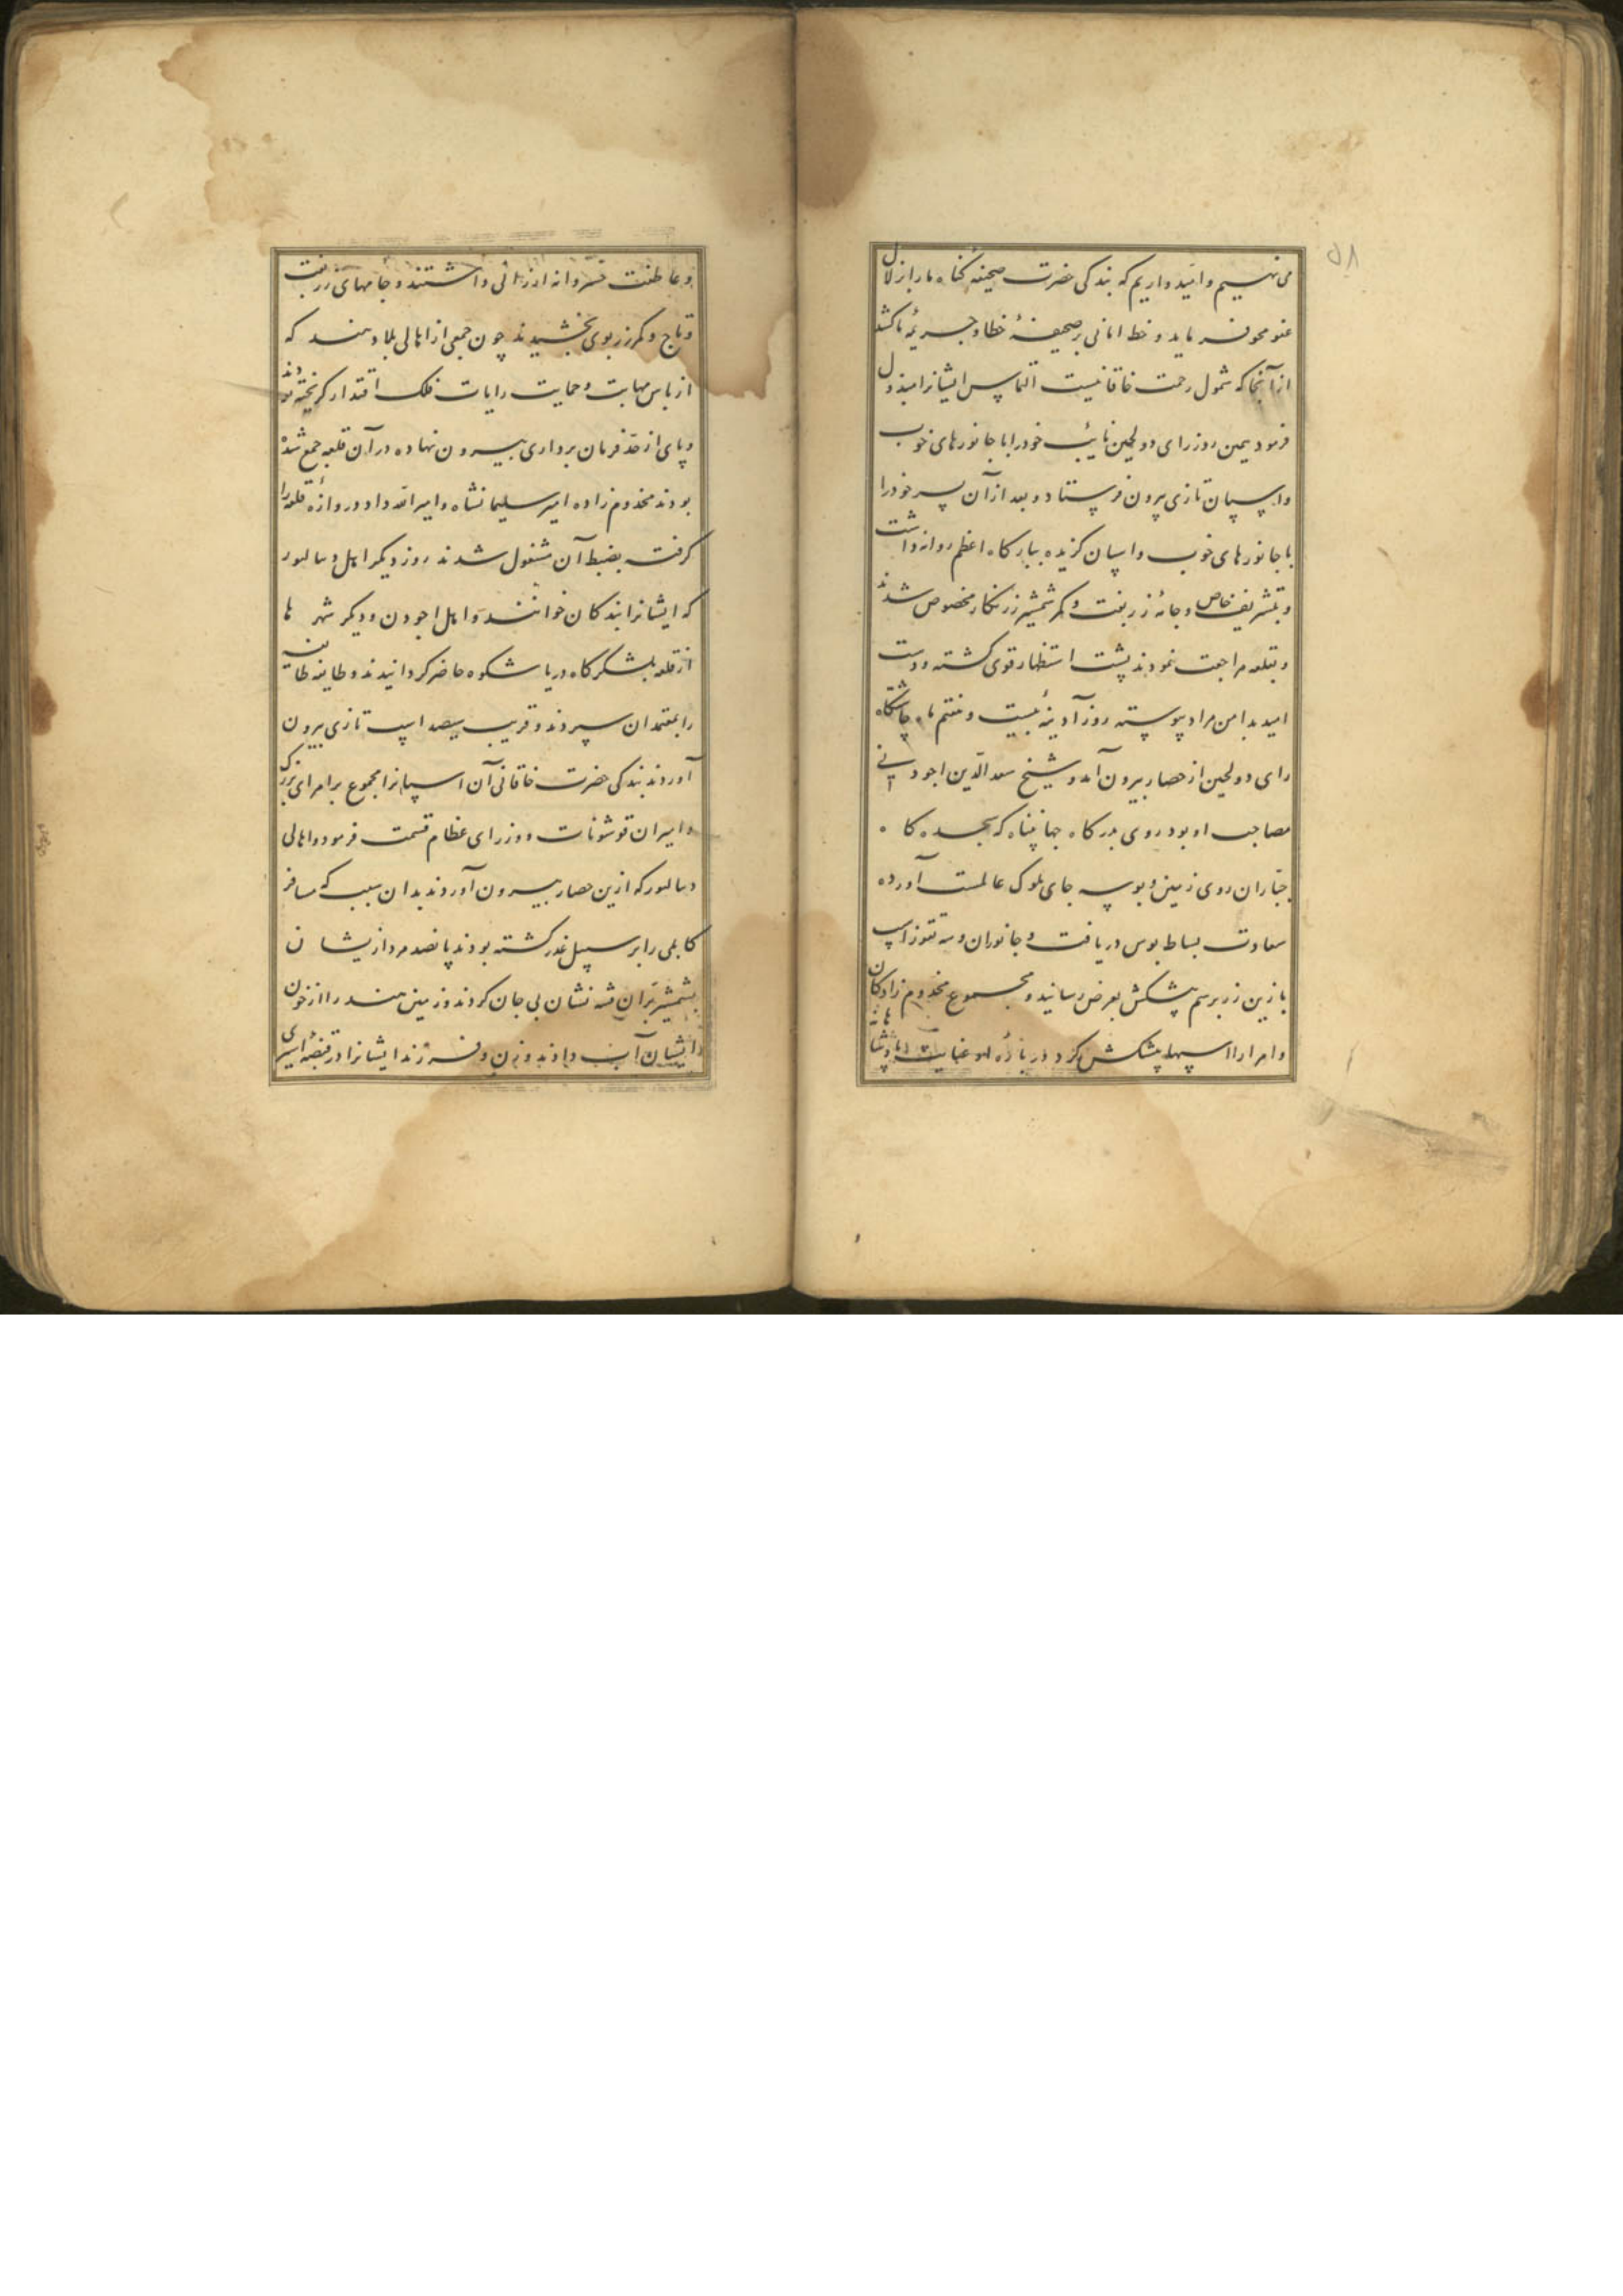 ۵۸
می نهیم و امید داریم که بندگی حضرت صحیفه گناه ما را از زلال
عفو محو فرماید و خط امانی بر صحیفهٔ خطا و جریمهٔ ما کشد
از آنجا که شمول رحمت خاقانیست التماس ایشانرا مبذول
فرمود همین روز رای دولجین نایب خود را با جانورهای خوب
و اسپان تازی بیرون فرستاد و بعد از آن پسر خود را
با جانورهای خوب و اسپان گزیده ببارگاه اعظم روانه داشت
و بتشریف خاص و جامهٔ زربفت و کمر شمشیر زرنگار مخصوص شدند
و بقلعه مراجعت نمودند پشت استظهار قوی گشته و دست
امید بدامن مراد پیوسته روز آدینهٔ بیست و هفتم ماه چاشتگاه
رای دولجین از حصار بیرون آمد و شیخ سعد الدین اجودنی
مصاحب او بود روی بدرگاه جهان پناه که سجده گاه
جباران روی زمین و بوسه جای ملوک عالمست آورده
سعادت بساط بوس دریافت و جانوران و سه تقوز اسپ
با زین زر برسم پیشکش بعرض رسانید و مجموع مخدوم زادگان
و امرا را اسپها پیشکش کرد در بارهٔ او عنایت پادشاهانه
و عاطفت خسروانه ارزانی داشتند و جامهای زربفت
و تاج و کمر زر بوی بخشیدند چون جمعی از اهالی بلاد هند که
از باس مهابت و حمایت رایات فلک اقتدار گریخته بودند
و پای از حد فرمان برداری بیرون نهاده در آن قلعه جمع شده
بودند مخدوم زاده امیر سلیمانشاه و امیر الله داد دروازهٔ قلعه را
گرفت بضبط آن مشغول شدند روز دیگر اهل دیبالپور
که ایشانرا بندگان خوانند و اهل اجودن و دیگر شهرها
از قلعه بلشکرگاه دریا شکوه حاضر گردانیدند و طایفه طایفه
را بمعتمدان سپردند و قریب سیصد اسپ تازی بیرون
آوردند بندگی حضرت خاقانی آن اسپانرا مجموع بر امرای بزرگ
و امیران قوشونات و وزرای عظام قسمت فرمود و اهالی
دیبالپور که ازین حصار بیرون آوردند بدان سبب که مسافر
کابلی را بر سبیل غدر کشته بودند پانصد مرد از یشان
بشمشیر بران شه نشان بی جان کردند و زمین هند را از خون
ایشان آب دادند و زن و فرزند ایشانرا در قبضهٔ اسیری